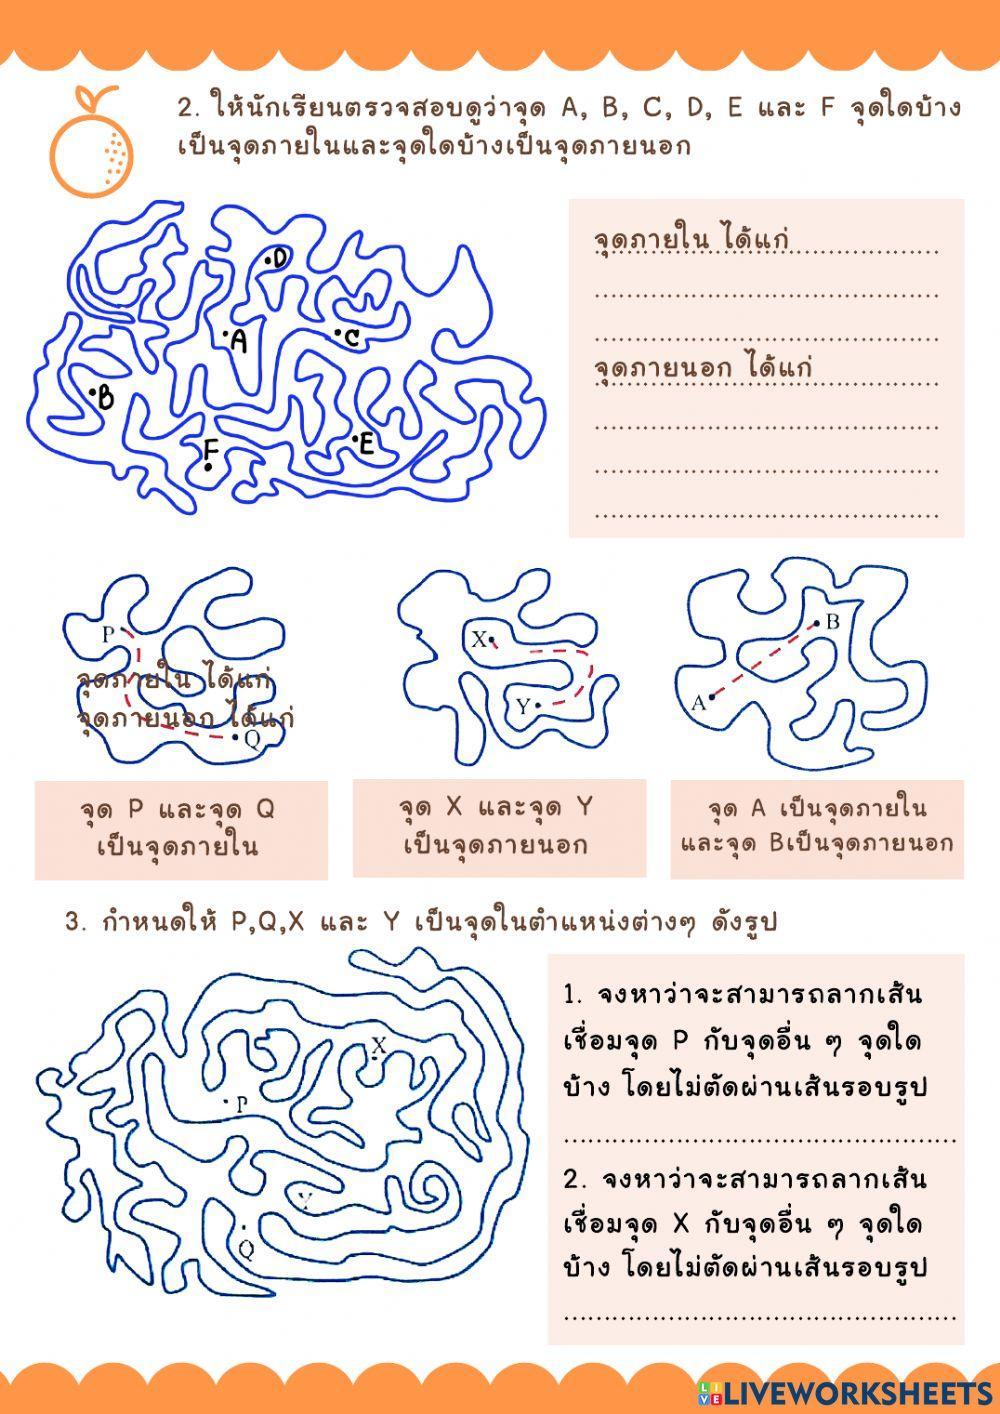 2. ให้นักเรียนตรวจสอบดูว่าจุด A, B, C, D, E และ F จุดใดบ้าง
เป็นจุดภายในและจุดใดบ้างเป็นจุดภายนอก
D
A
C
B
F
E
จุดภายใน ได้แก่
จุดภายนอก ได้แก่
P
จุดภายใน ได้แก่
จุดภายนอก ได้แก่
Q
X
Y
B
A
จุด P และจุด Q
เป็นจุดภายใน
จุด X และจุด Y
เป็นจุดภายนอก
จุด A เป็นจุดภายใน
และจุด Bเป็นจุดภายนอก
3. กำหนดให้ P,Q,X และ Y เป็นจุดในตำแหน่งต่างๆ ดังรูป
X
P
Y
Q
1. จงหาว่าจะสามารถลากเส้น
เชื่อมจุด P กับจุดอื่น ๆ จุดใด
บ้าง โดยไม่ตัดผ่านเส้นรอบรูป
2. จงหาว่าจะสามารถลากเส้น
เชื่อมจุด X กับจุดอื่น ๆ จุดใด
บ้าง โดยไม่ตัดผ่านเส้นรอบรูป
LIVE LIVEWORKSHEETS